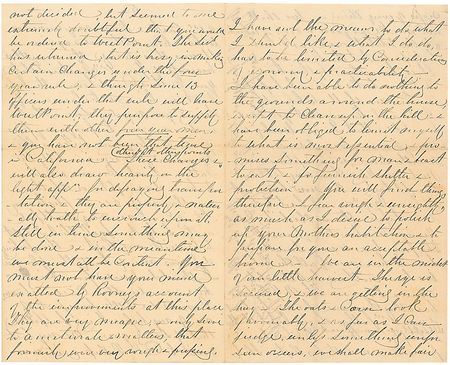 not decided, but seemed to me
extremely doubtful that you would
be ordered to West Point. The Sect
has returned, but is busy in making
Certain Changes under the four
year rule, & though some 13
officers under that rule will leave
West Point, they propose to supply
them with other four year men,
& you have not been but
in California
These Changes
will also draw heavily on the
light app for defraying transpor
tation, & they are properly & materi
ally to wish to
Still in time Something may
be done & in the meantime
we must all be Content. You
must not have your mind
exalted by Rooney's account
of the improvements at this place
They are very meagre, & only serve
to ameliorate matters, that
formerly were very rough & pressing.
I have not the means to do what
I should like & what I do do,
has to be limited by Considerations
of economy & practicability
I have been able to do nothing to
the grounds around the house,
except to Clean up on the hill & I
have been obliged to limit myself
to what is most essential & pro
mises Something for man & beast
to eat, & to furnish shelter &
protection. You will find things
therefore I fear rough & unsightly,
as much as I desire to polish
up your Mothers habitation & to
prepare for you an acceptable
home. We are in the midst
of our little harvest. The rye is
secured, & we are getting in the
hay. The oats & Corn look
promising, & as far as I Can
judge, unless Something unfore
seen occurs, we shall make fair